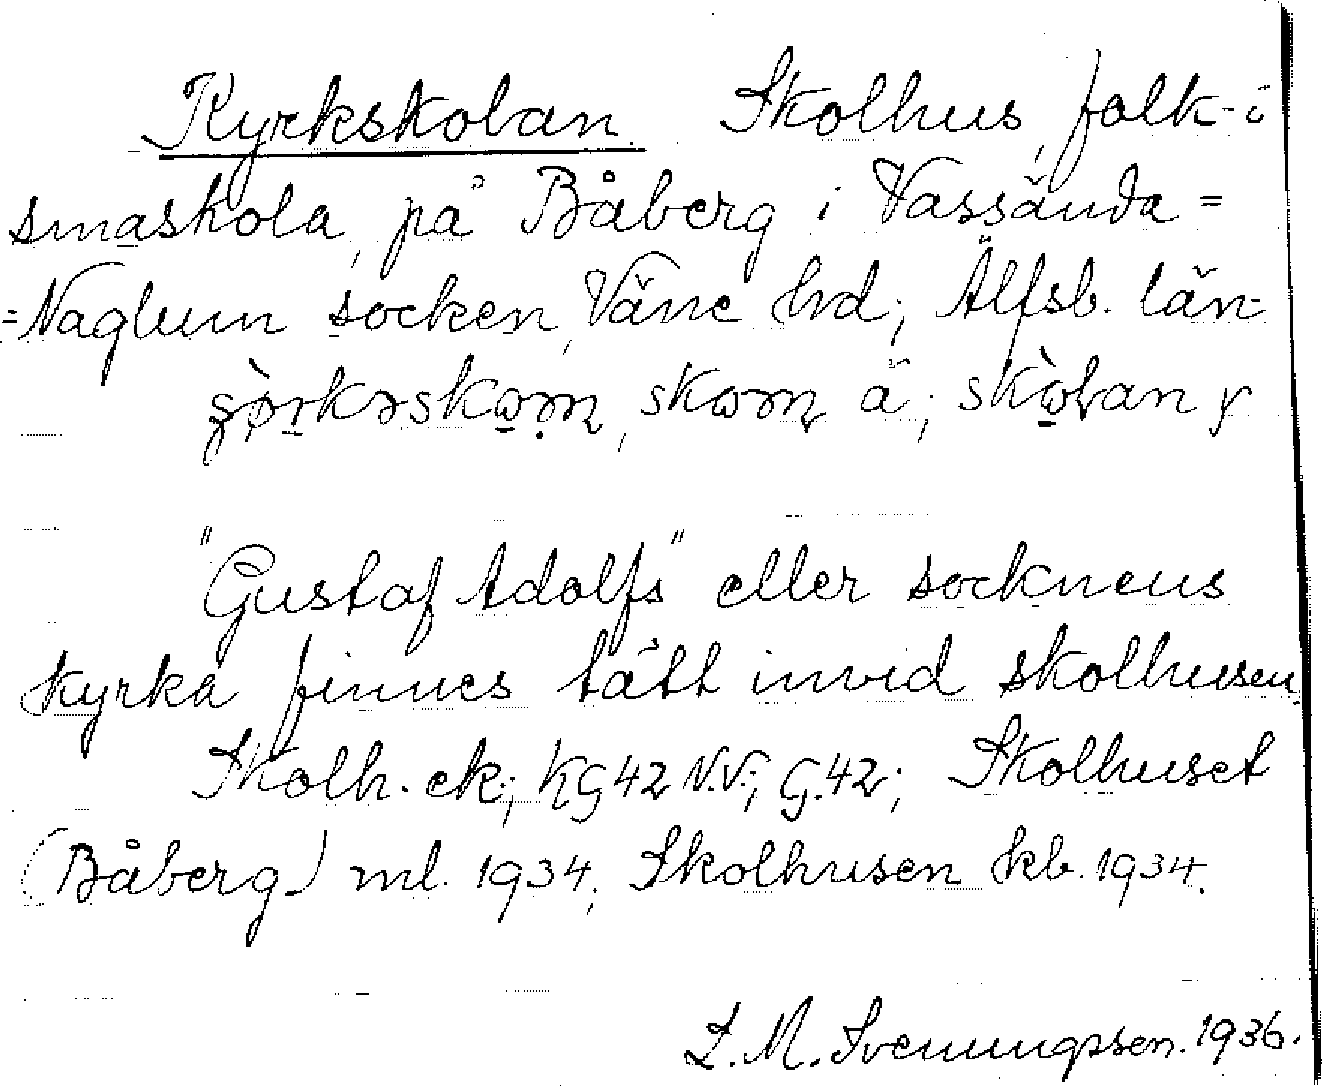 Kyrkskolan. Skolhus, folk- o
småskola, på Båberg i Vassända=
=Naglum socken, Väne hd; Älfsb. län.
skolan
"Gustaf Adolfs" eller socknens
kyrka finnes tätt invid skolhusen.
Skolh. ek.; KG 42 N.V.; G.42; Skolhuset
(Båberg) ml. 1934; Skolhusen kb. 1934.
L. M. Svenungsson. 1936.